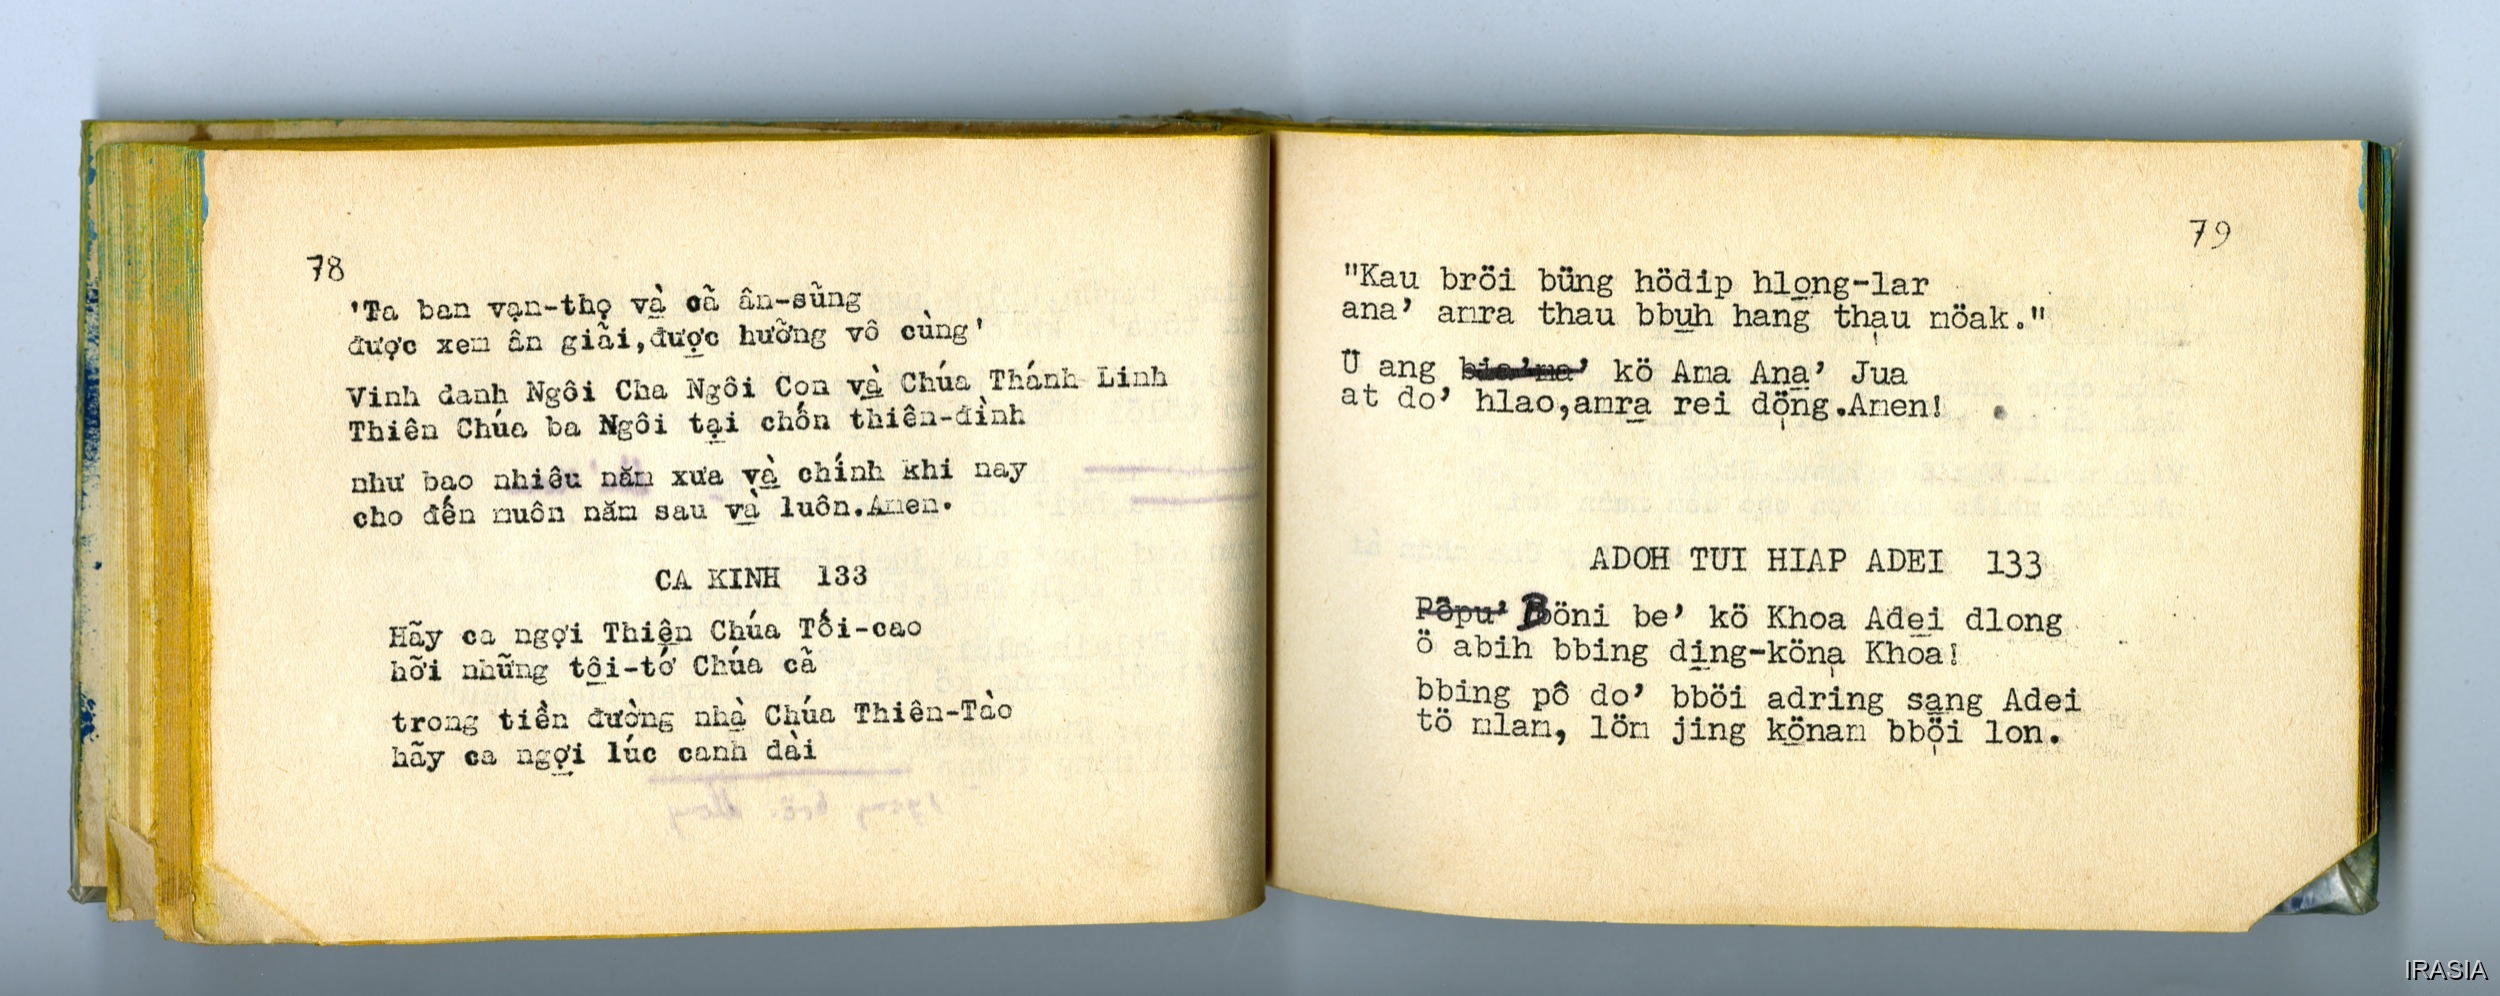 78
'Ta ban vạn-thọ và cã ân-sũng
được xem ân giãi,được hưỡng vô cùng'
Vinh danh Ngôi Cha Ngôi Con và Chúa Thánh Linh
Thiên Chúa ba Ngôi tại chốn thiên-đình
như bao nhiêu năm xưa và chính khi nay
cho đến muôn năm sau và luôn.Amen.
CA KINH 133
Hãy ca ngợi Thiên Chúa Tối-cao
hỡi những tôi-tớ Chúa cã
trong tiền đường nhà Chúa Thiên-Tào
hãy ca ngợi lúc canh dài
79
"Kau bröi büng hödip hlong-lar
ana’ amra thau bbuh hang thau möak."
Ü ang kö Ama Ana’ Jua
at do’ hlao,amra rei döng.Amen!
ADOH TUI HIAP ADEI 133
Pôpu’ Böni be’ kö Khoa Adei dlong
ö abih bbing ding-köna Khoa!
bbing pô do’ bböi adring sang Adei
tö mlam, löm jing könam bböi lon.
IRASIA